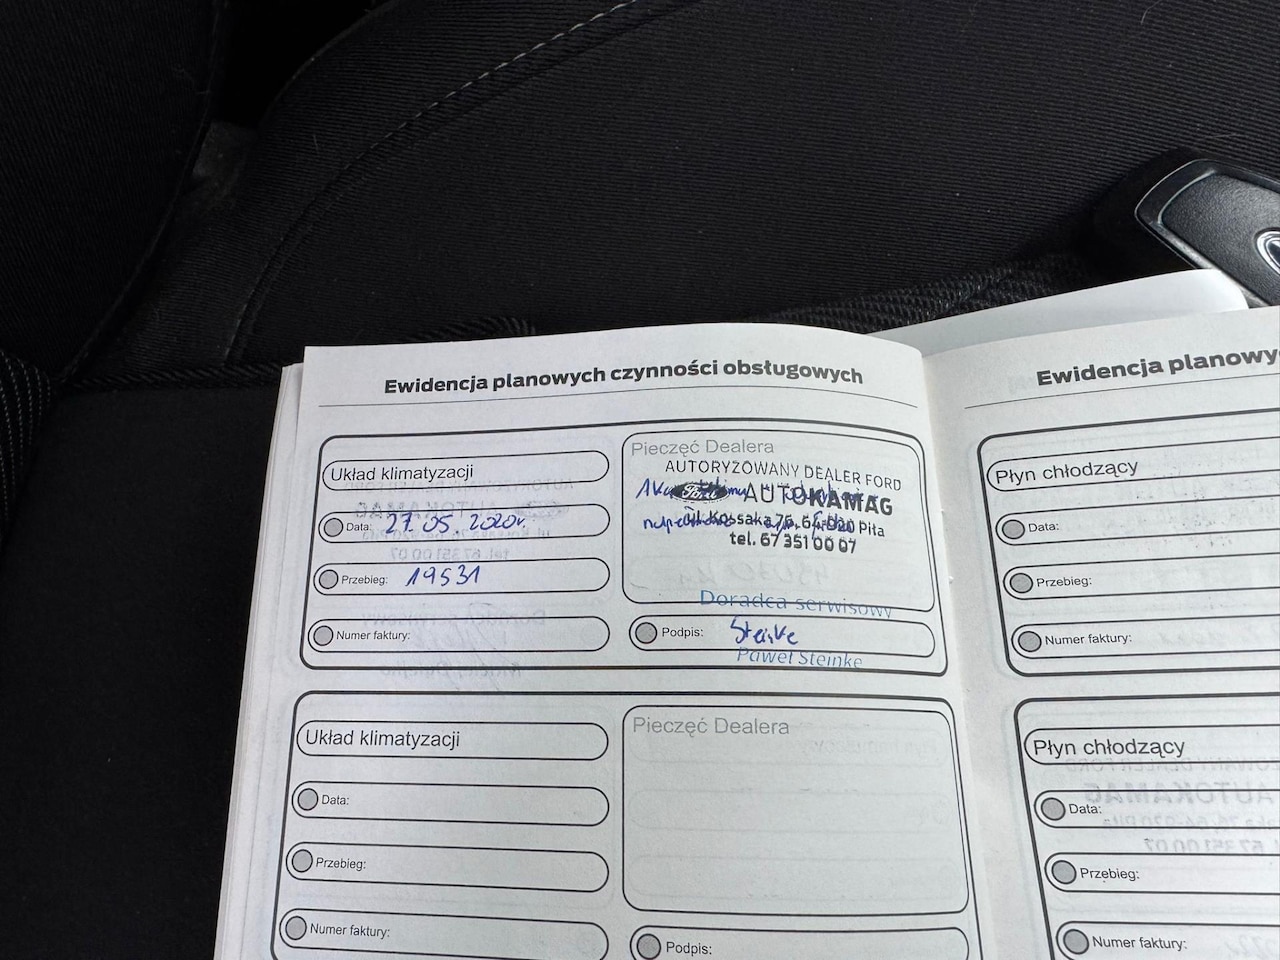 Ewidencja planowych czynności obsługowych
Układ klimatyzacji
Data: 27.05.2020r.
Przebieg: 19531
Numer faktury:
Pieczęć Dealera
AUTORYZOWANY DEALER FORD
Ford AUTOKAMAG
ul. Kossaka 76, 64-920 Piła
tel. 67 351 00 07
Doradca serwisowy
Podpis: Steinke
Paweł Steinke
Układ klimatyzacji
Data:
Przebieg:
Numer faktury:
Pieczęć Dealera
Podpis:
Ewidencja planowy
Płyn chłodzący
Data:
Przebieg:
Numer faktury:
Płyn chłodzący
Data:
Przebieg:
Numer faktury: